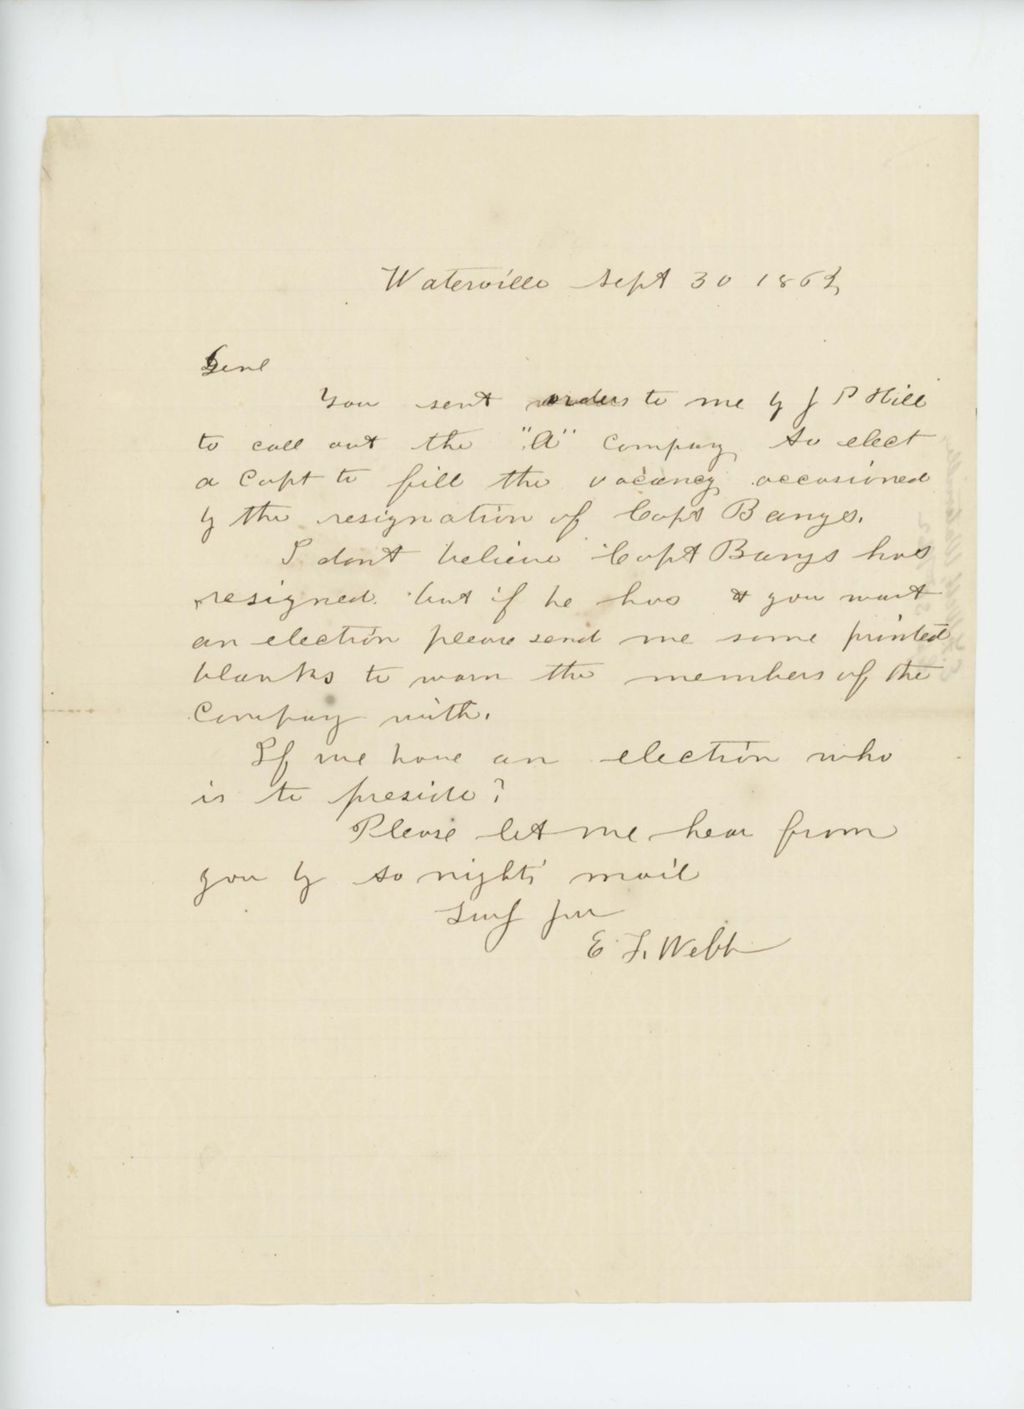 Waterville Sept 30 1862
Genl
You sent orders to me by J P Hill
to call out the "A" Company to elect
a Capt to fill the vacancy occasioned
by the resignation of Capt Bangs.
I don't believe Capt Bangs has
resigned but if he has & you want
an election please send me some printed
blanks to warn the members of the
Company with.
If we have an election who
is to preside?
Please let me hear from
you by to nights mail
E. F. Webb